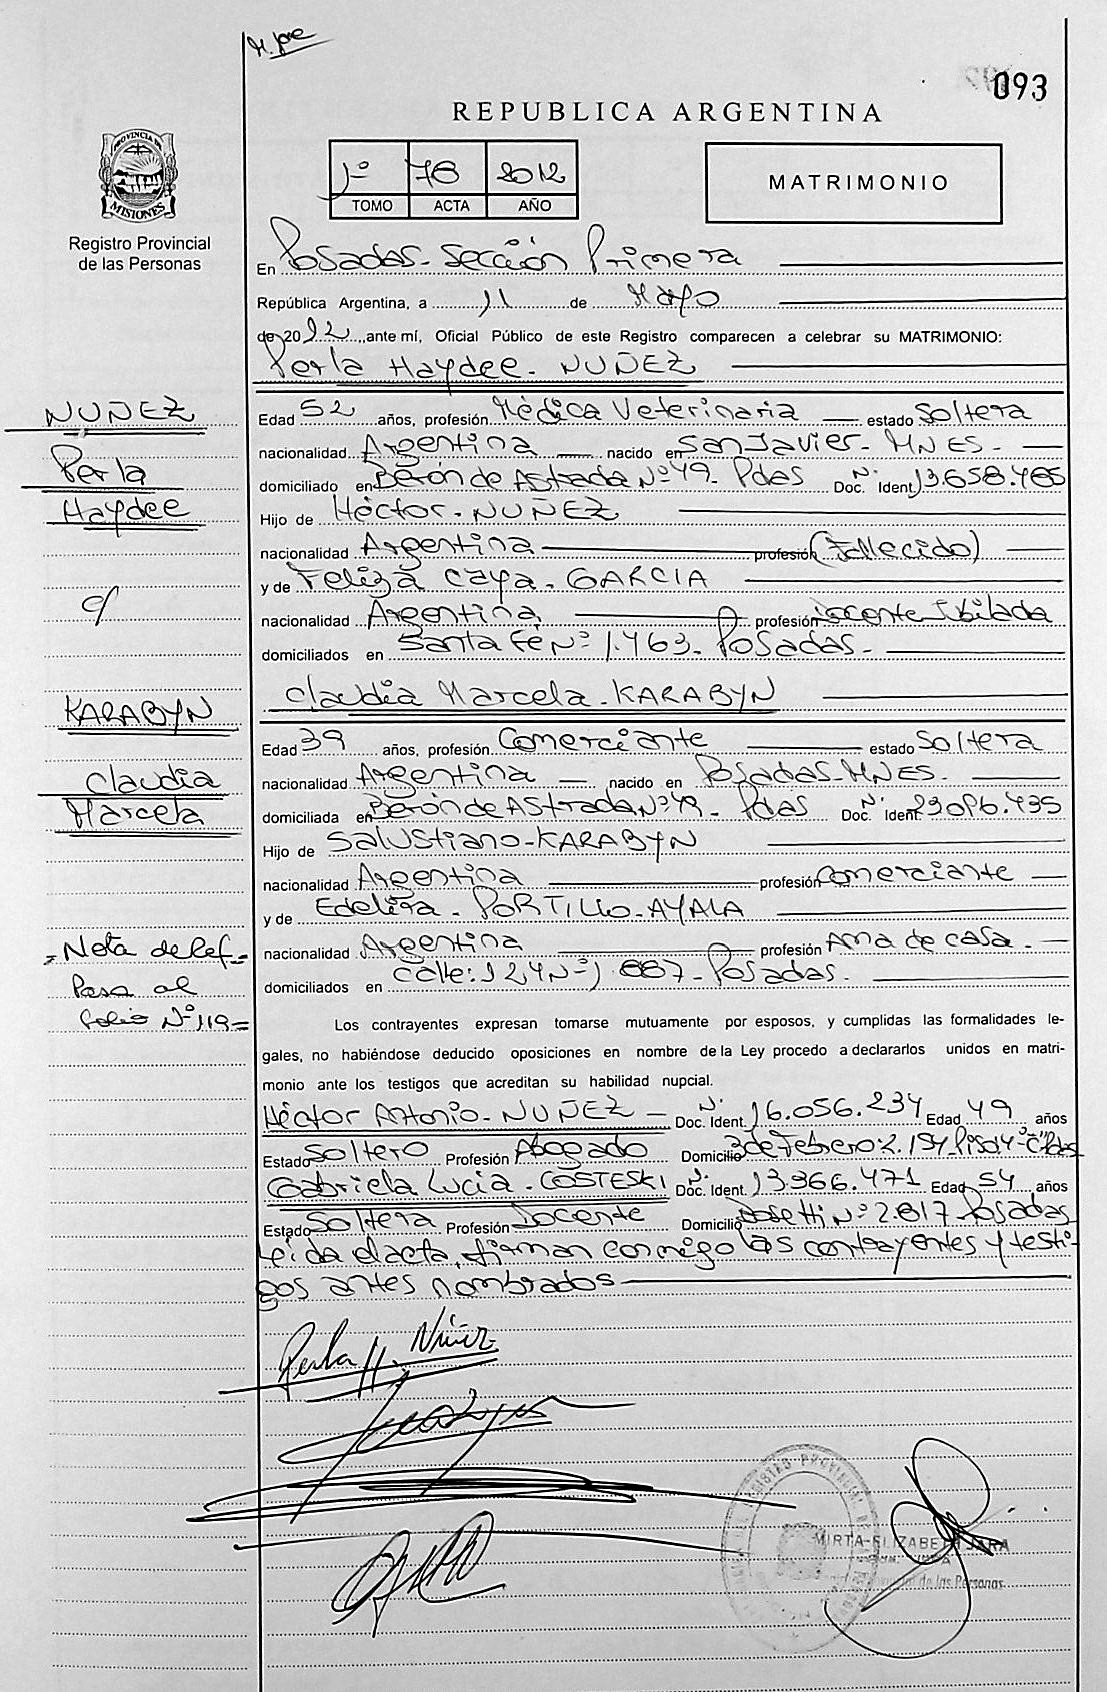 093
REPUBLICA ARGENTINA
1º 78 2012
TOMO ACTA AÑO
MATRIMONIO
PROVINCIA DE MISIONES
Registro Provincial
de las Personas
En Posadas - Sección Primera
República Argentina, a 11 de Mayo
de 2012, ante mí, Oficial Público de este Registro comparecen a celebrar su MATRIMONIO:
Perla Haydee - NUÑEZ
NUÑEZ
Perla
Haydee
c/
KARABYN
Claudia
Marcela
= Nota de Ref =
Pasa al
folio Nº 119 =
Edad 52 años, profesión Médica Veterinaria estado Soltera
nacionalidad Argentina nacido en San Javier - MNES -
domiciliado en Berón de Astrada Nº 49 - Pdas Doc. Ident. Nº 13.658.485
Hijo de Héctor - NUÑEZ
nacionalidad Argentina profesión (Fallecido)
y de Feliza Caya - GARCIA
nacionalidad Argentina profesión Docente Jubilada
domiciliados en Santa Fe Nº 1.463 - Posadas -
Claudia Marcela - KARABYN
Edad 39 años, profesión Comerciante estado Soltera
nacionalidad Argentina nacido en Posadas - MNES -
domiciliada en Berón de Astrada Nº 49 - Pdas Doc. Ident. Nº 23.096.435
Hijo de Salustiano - KARABYN
nacionalidad Argentina profesión Comerciante
y de Edelira - PORTILLO - AYALA
nacionalidad Argentina profesión Ama de casa -
domiciliados en Calle: 124 Nº 1.887 - Posadas -
Los contrayentes expresan tomarse mutuamente por esposos, y cumplidas las formalidades le-
gales, no habiéndose deducido oposiciones en nombre de la Ley procedo a declararlos unidos en matri-
monio ante los testigos que acreditan su habilidad nupcial.
Héctor Antonio - NUÑEZ - Doc. Ident. Nº 16.056.234 Edad 49 años
Estado Soltero Profesión Abogado Domicilio 3 de Febrero 2.154 Piso 4º "C" Pdas
Gabriela Lucia - COSTESKI Doc. Ident. Nº 13.366.471 Edad 54 años
Estado Soltera Profesión Docente Domicilio Nº 2.817 Posadas
Leída el acta, firman conmigo las contrayentes y testi-
gos antes nombrados
Perla H. Núñez
MIRTA ELIZABETH JARA
de las Personas